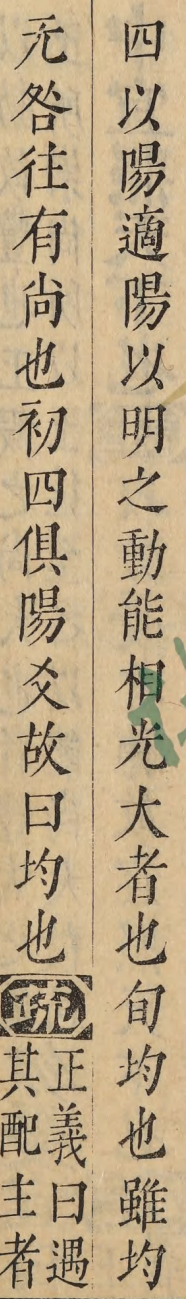 四以陽適陽以明之動能相光大者也旬均也雖均
无咎往有尚也初四俱陽爻故曰均也疏正義曰遇
其配主者